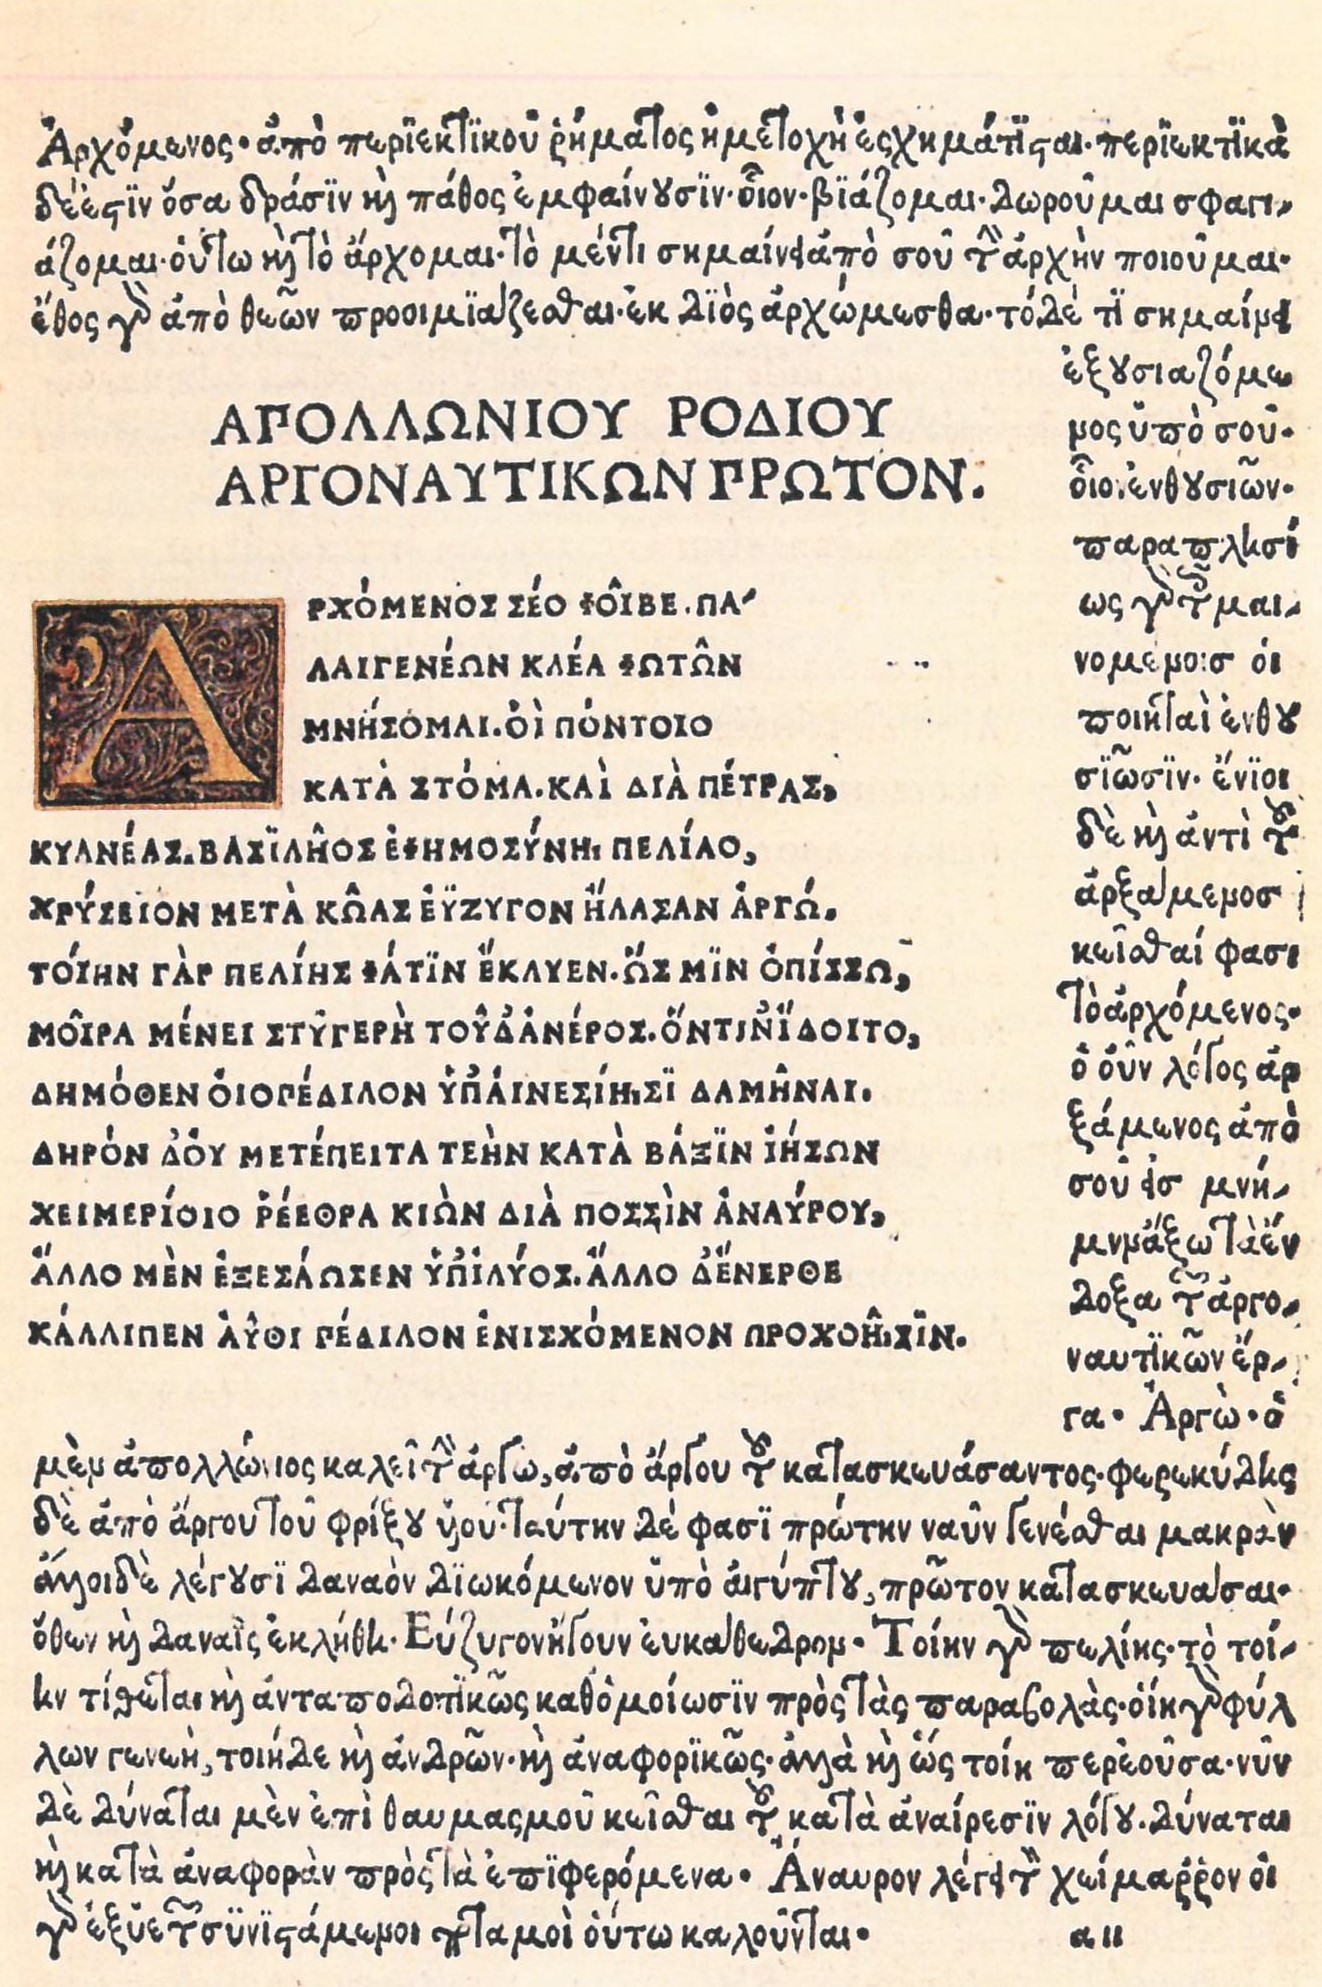 Ἀρχόμενος· ἀπὸ περϊεκτϊκοῦ ῥήματος ἡ μετοχὴ ἐσχημάτϊσαι· περϊεκτϊκὰ
δέ ἐστϊν ὅσα δράσϊν καὶ πάθος ἐμφαίνουσϊν· οἷον· βϊάζομαι· δωροῦμαι σφαγι-
άζομαι· οὕτω καὶ τὸ ἄρχομαι· τὸ μέντι σημαίνει ἀπὸ σοῦ τὴν ἀρχὴν ποιοῦμαι·
ἔθος γὰρ ἀπὸ θεῶν προοιμϊάζεσθαι· ἐκ Δϊὸς ἀρχώμεσθα· τόδε τϊ σημαίνει
ἐξουσιαζόμε
νος ὑπὸ σοῦ·
οἷον· ἐνθουσιῶν·
παραπλησί
ως γὰρ τοῖς μαι-
νομένοισ οἱ
ποιηταὶ ἐνθου
σϊῶσϊν· ἔνϊοι
δὲ καὶ ἀντὶ τοῦ
ἀρξάμενοσ
κεῖσθαί φασι
τὸ ἀρχόμενος·
ὁ οὖν λόγος ἀρ
ξάμενος ἀπὸ
σοῦ εἰσ μνή-
μην ἄξω τὰ ἔν
δοξα τῶν ἀργο-
ναυτϊκῶν ἔρ-
γα· Ἀργὼ· ὁ
ΑΠΟΛΛΩΝΙΟΥ ΡΟΔΙΟΥ
ΑΡΓΟΝΑΥΤΙΚΩΝ ΠΡΩΤΟΝ.
ΑΡΧΌΜΕΝΟΣ ΣΈΟ ΦΟῖΒΕ. ΠΑ-
ΛΑΙΓΕΝΈΩΝ ΚΛΈΑ ΦΩΤΩ͂Ν
ΜΝΉΣΟΜΑΙ. ΟἻ ΠΌΝΤΟΙΟ
ΚΑΤᾺ ΣΤΌΜΑ. ΚΑῚ ΔΙᾺ ΠΈΤΡΑΣ,
ΚΥΑΝΈΑΣ. ΒΑΣΪΛΗ͂ΟΣ ἘΦΗΜΟΣΎΝΗΙ ΠΕΛΊΑΟ,
ΧΡΎΣΕΙΟΝ ΜΕΤᾺ ΚΩ͂ΑΣ ἘΫΖΥΓΟΝ ἬΛΑΣΑΝ ἈΡΓΏ.
ΤΟΊΗΝ ΓᾺΡ ΠΕΛΊΗΣ ΦΆΤΪΝ ἜΚΛΥΕΝ. ὭΣ ΜΪΝ ὈΠΊΣΣΩ,
ΜΟῖΡΑ ΜΈΝΕΙ ΣΤΥΓΕΡῊ ΤΟΥ͂Δ᾽ ἈΝΈΡΟΣ. ὍΝΤΙΝ᾽ ἼΔΟΙΤΟ,
ΔΗΜΌΘΕΝ ὈΙΟΠΈΔΙΛΟΝ ὙΠ᾽ ἈΙΝΕΣΊΗΙΣΪ ΔΑΜΗ͂ΝΑΙ.
ΔΗΡΌΝ Δ᾽ ὈΥ ΜΕΤΈΠΕΙΤΑ ΤΕῊΝ ΚΑΤᾺ ΒΆΞΪΝ ἸΉΣΩΝ
ΧΕΙΜΕΡΊΟΙΟ ῬΈΕΘΡΑ ΚΙῺΝ ΔΙᾺ ΠΟΣΣῚΝ ἈΝΑΎΡΟΥ,
ἌΛΛΟ ΜῈΝ ἘΞΕΣΆΩΣΕΝ ὙΠ᾽ ἸΛΎΟΣ. ἌΛΛΟ Δ᾽ ἜΝΕΡΘΕ
ΚΆΛΛΙΠΕΝ ἈΥ͂ΘΙ ΠΈΔΙΛΟΝ ἘΝΙΣΧΌΜΕΝΟΝ ΠΡΟΧΟΗ͂ΙΣΪΝ.
μὲν ἀπολλώνιος καλεῖ τὴν ἀργὼ, ἀπὸ ἄργου τοῦ κατασκευάσαντος· φερεκύδης
δὲ ἀπὸ ἄργου τοῦ φρίξου ὑιοῦ· ταύτην δέ φασϊ πρώτην ναῦν γενέσθαι μακρὰν
ἄλλοι δὲ λέγουσϊ δαναὸν δϊωκόμενον ὑπὸ ἀιγύπτου, πρῶτον κατασκευάσαι·
ὅθεν καὶ δαναῒς ἐκλήθη· Εὐζυγον ἤγουν ἐυκάθεδρον· Τοίην γὰρ πελίης· τὸ τοί-
ην τίθεται καὶ ἀνταποδοτϊκῶς καθ᾽ ὁμοίωσϊν πρὸς τὰς παραβολὰς· ὁίη γὰρ φύλ
λων γενεὴ, τοιήδε καὶ ἀνδρῶν· καὶ ἀναφορϊκῶς· ἀλλὰ καὶ ὥς τοίη περ ἐοῦσα· νῦν
δὲ δύναται μὲν ἐπὶ θαυμασμοῦ κεῖσθαι τοῦ κατὰ ἀναίρεσϊν λόγου. δύναται
καὶ κατὰ ἀναφορὰν πρὸς τὰ ἐπϊφερόμενα· Ἄναυρον λέγει τὸν χείμαῤῥον οἱ
γὰρ ἐξ ὑετῶν συνϊστάμενοι ποταμοὶ οὕτω καλοῦνται·
a ii